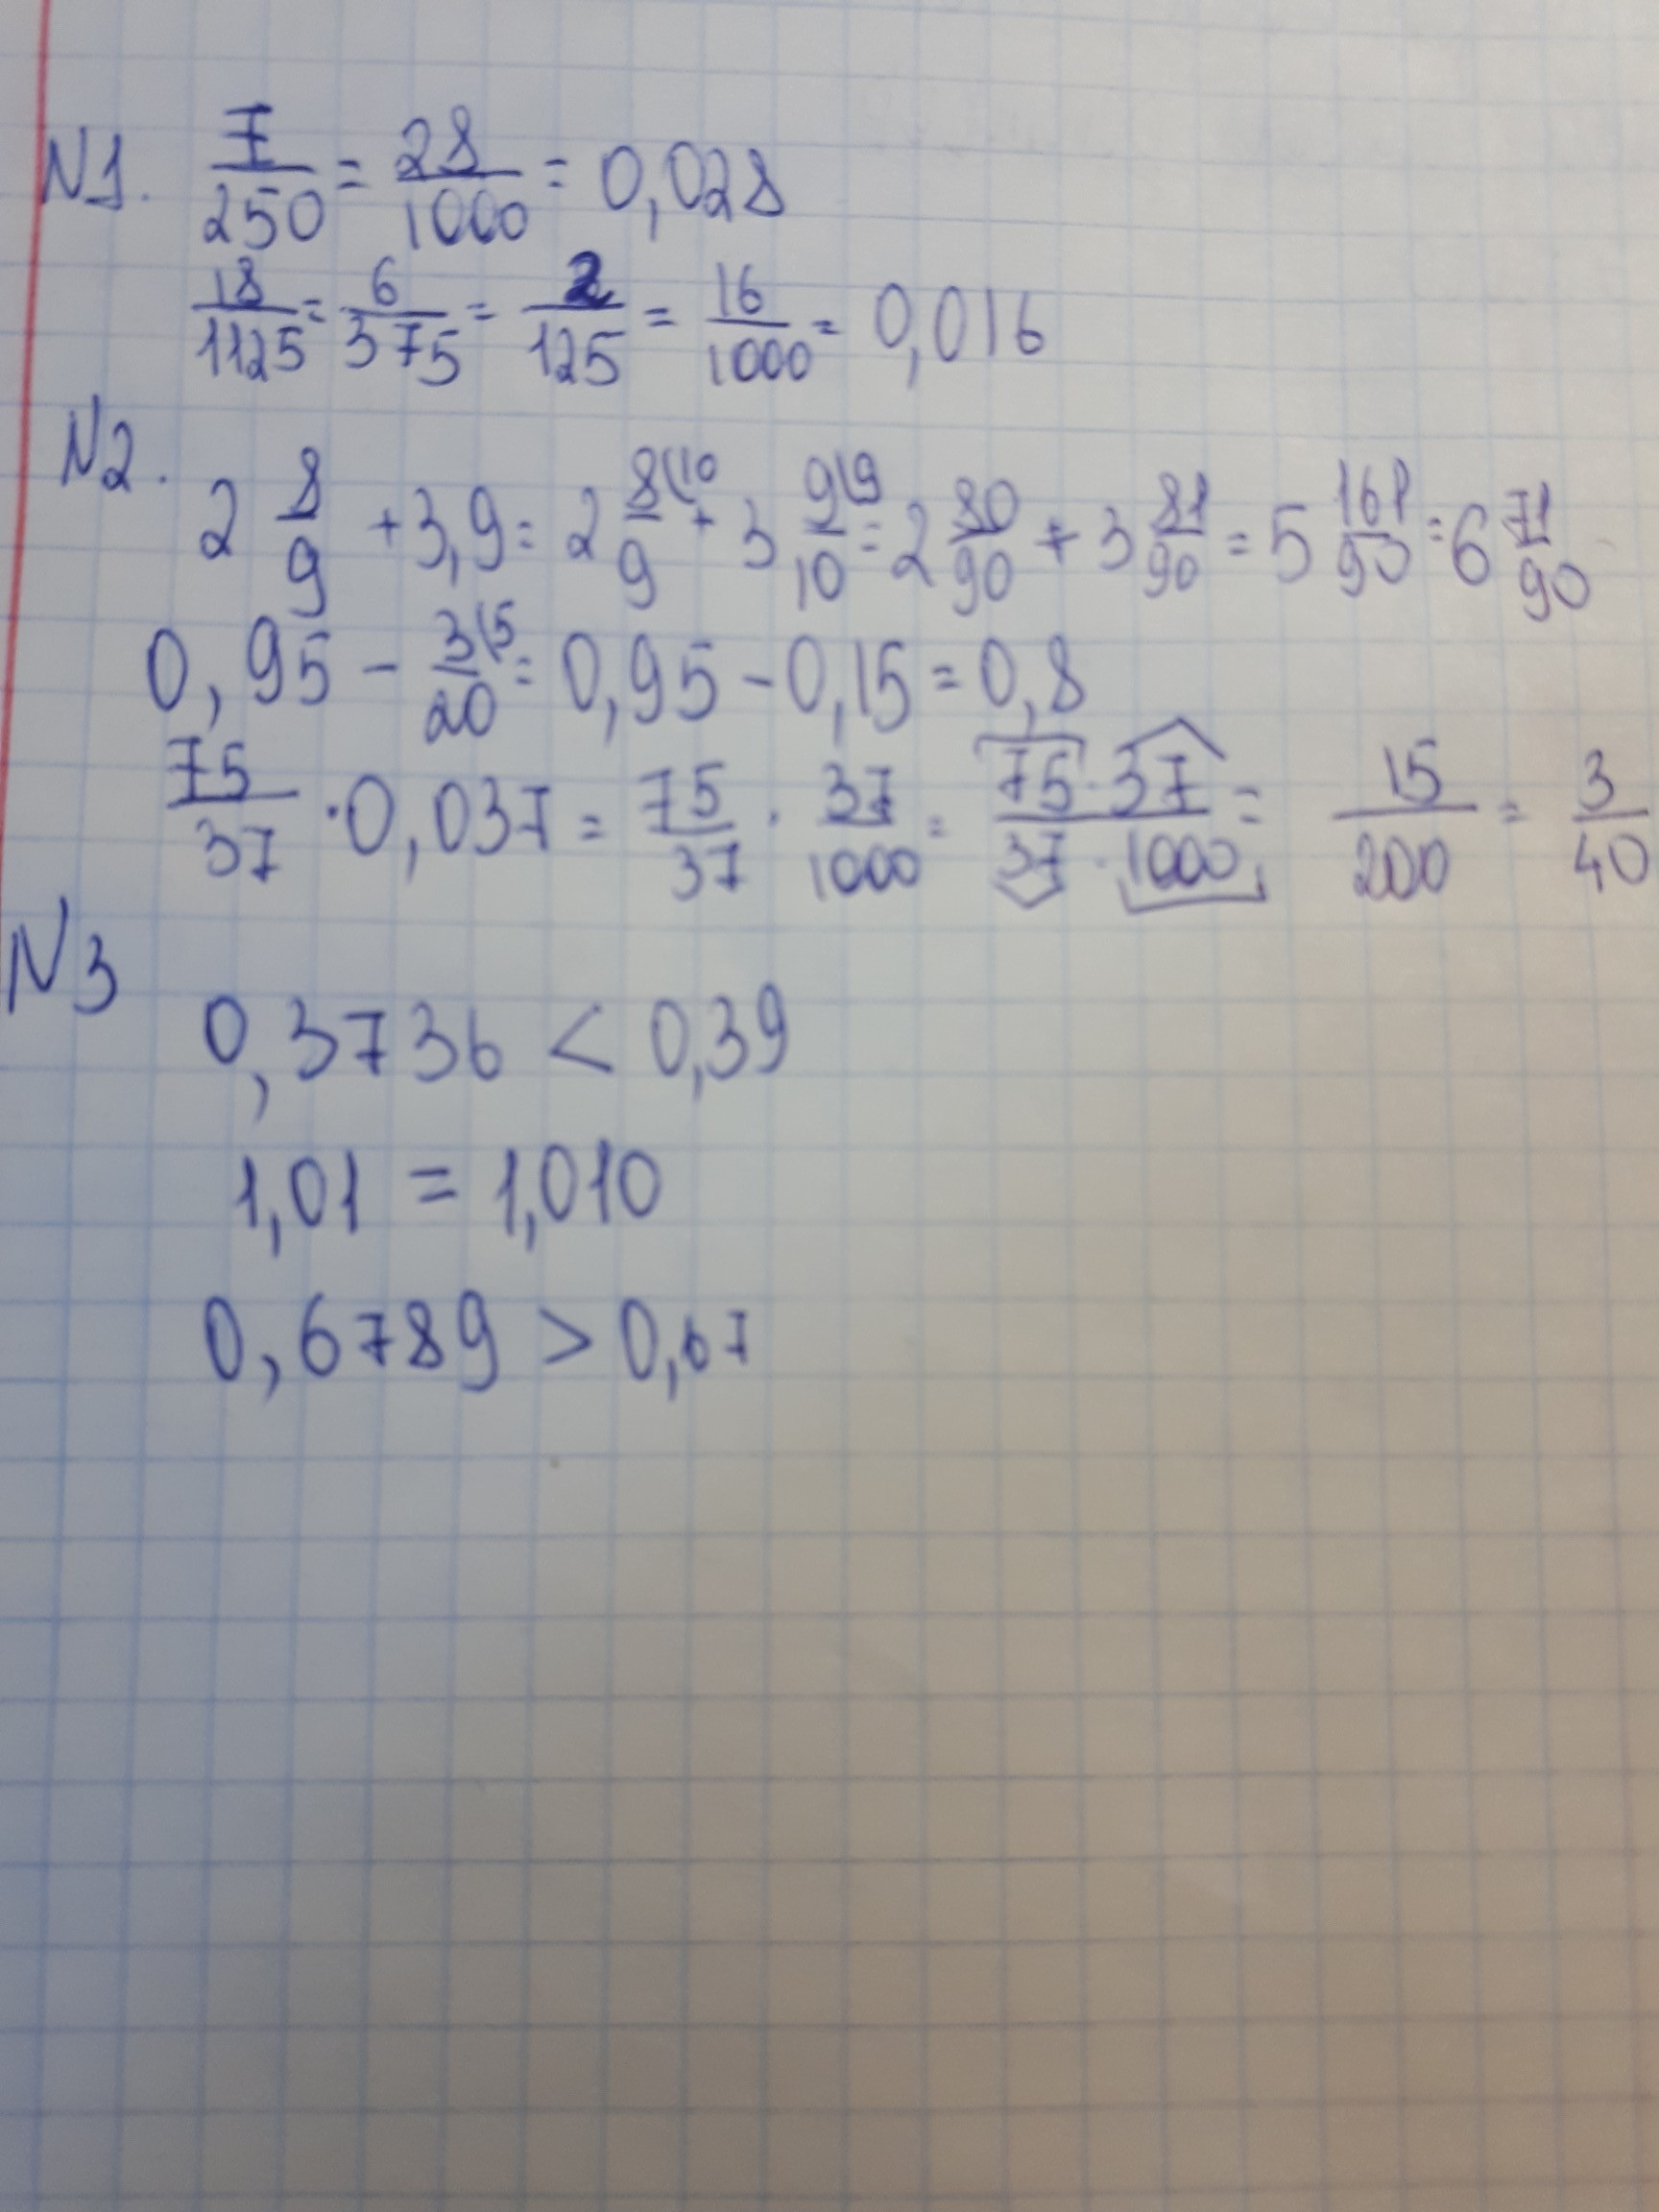 N1. 7/250 = 28/1000 = 0,028
18/1125 = 6/375 = 2/125 = 16/1000 = 0,016
N2.
2 8/9 + 3,9 = 2 8(10/9 + 3 9(9/10 = 2 80/90 + 3 81/90 = 5 161/90 = 6 71/90
0,95 - 3(5/20 = 0,95 - 0,15 = 0,8
75/37 · 0,037 = 75/37 · 37/1000 = 75·37/37·1000 = 15/200 = 3/40
N3
0,3736 < 0,39
1,01 = 1,010
0,6789 > 0,67